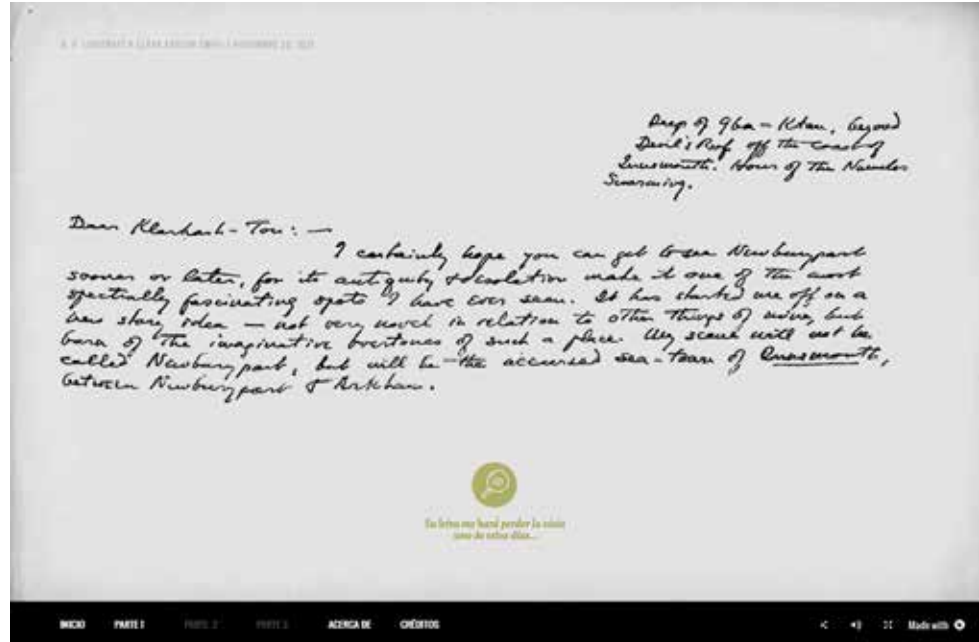 H. P. LOVECRAFT A CLARK ASHTON SMITH | NOVIEMBRE 20, 1931
Deep of Gba-Ktan, beyond
Devil's Reef off the coast of
Innsmouth. Hour of the Nameless
Swarming.
Dear Klarkash-Ton: —
I certainly hope you can get to see Newburyport
sooner or later, for its antiquity & desolation make it one of the most
spectrally fascinating spots I have ever seen. It has started me off on a
new story idea — not very novel in relation to other things of mine, but
born of the imaginative overtones of such a place. My scene will not be
called Newburyport, but will be the accursed sea-town of Innsmouth,
between Newburyport & Arkham.
Su letra me hará perder la vista
uno de estos días...
INICIO PARTE 1 PARTE 2 PARTE 3 ACERCA DE CRÉDITOS Made with